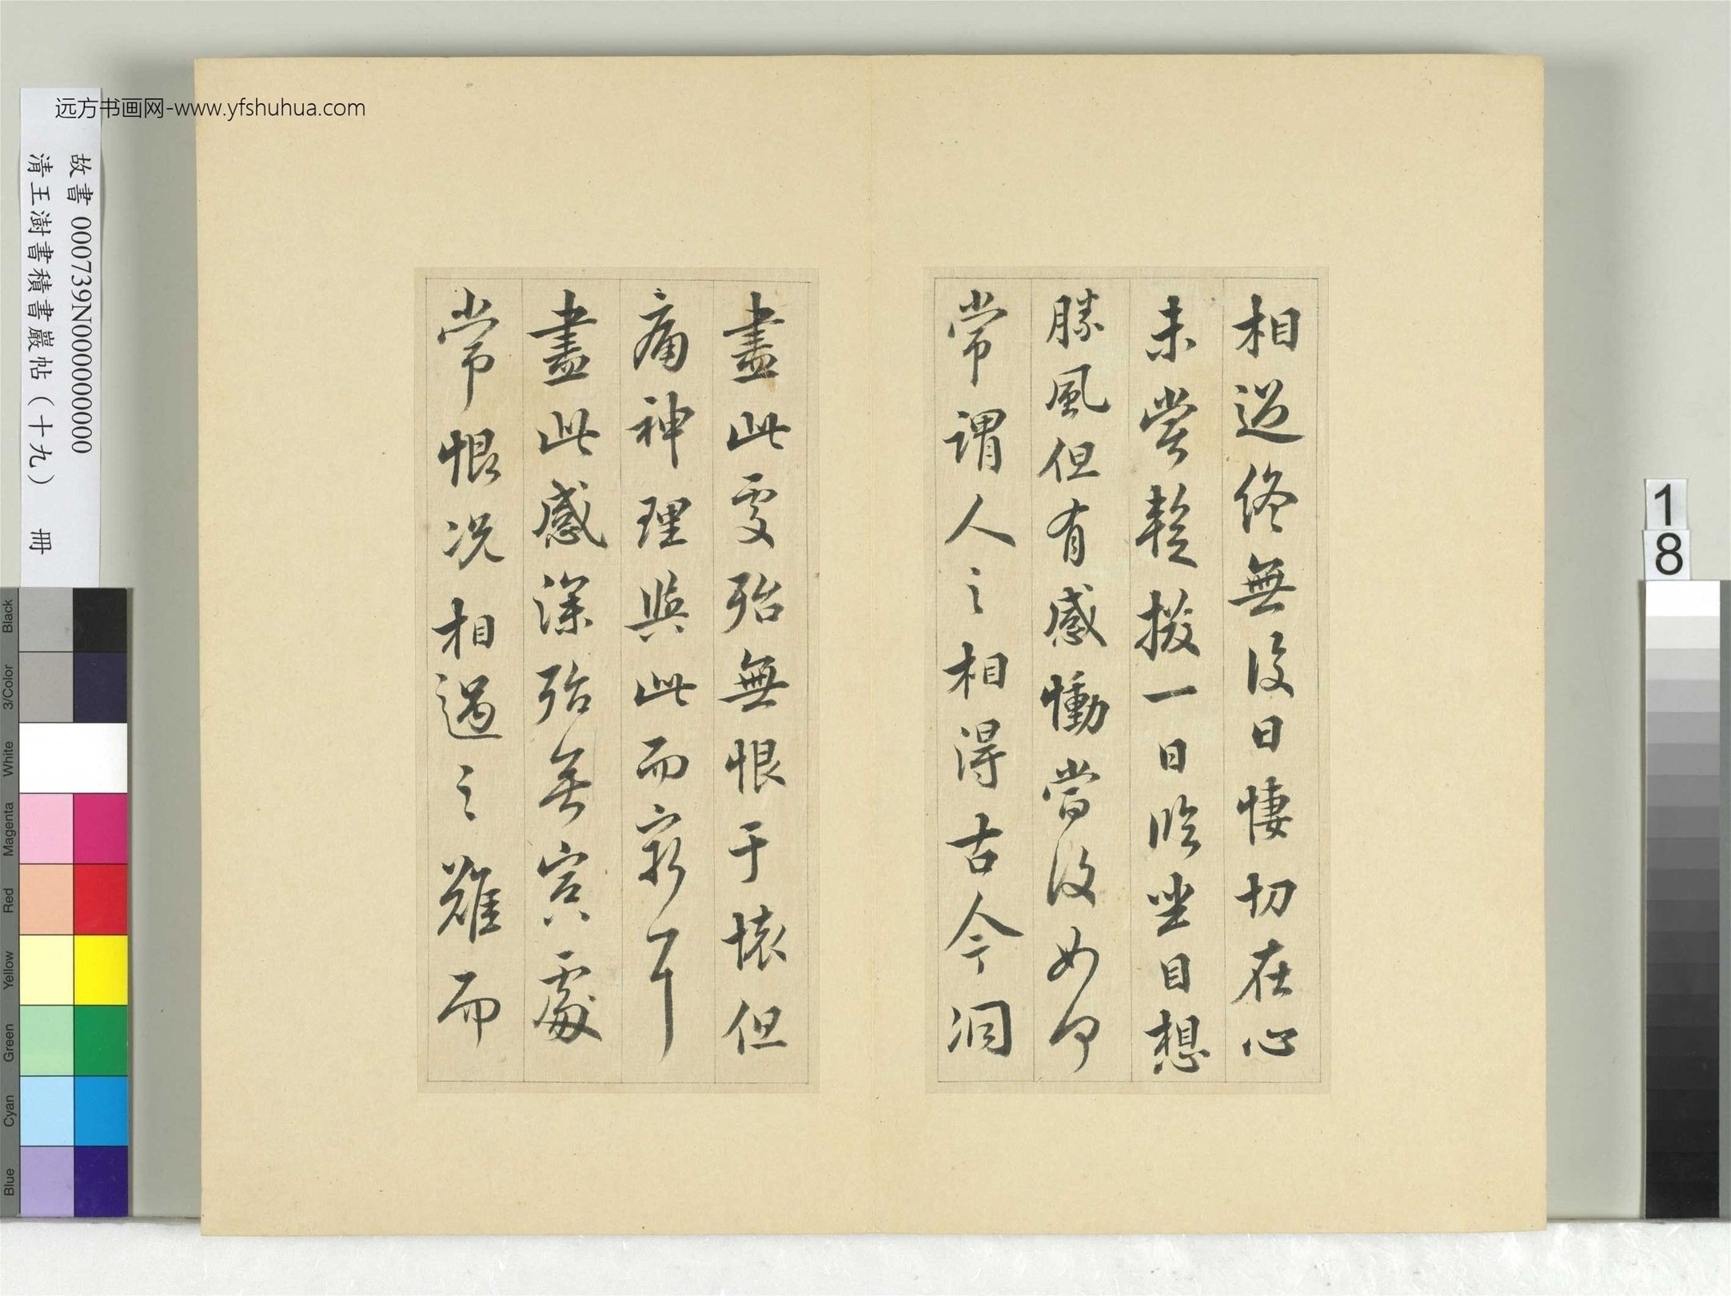 远方书画网-www.yfshuhua.com
故書 000739N000000000
清王澍書積書巖帖(十九) 冊
相過終無復日悽切在心
未嘗暫掇一日臨坐目想
勝風但有感慟當復如何
常謂人之相得古今洞
盡此處殆無恨于懷但
痛神理與此而窮耳
盡此感深殆無冥處
常恨況相遇之難而
18
Black
3/Color
White
Magenta
Red
Yellow
Green
Cyan
Blue